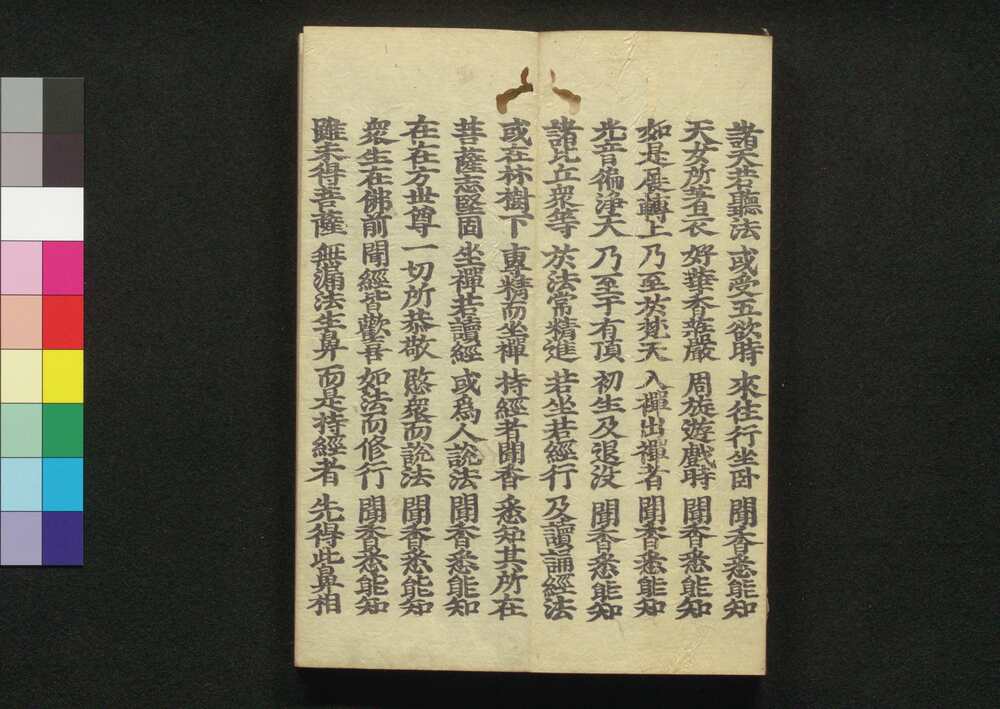 諸天若聽法 或受五欲時 來往行坐卧 聞香悉能知
天女所著衣 好華香莊嚴 周旋遊戲時 聞香悉能知
如是展轉上 乃至於梵天 入禪出禪者 聞香悉能知
光音徧淨天 乃至于有頂 初生及退没 聞香悉能知
諸比丘衆等 於法常精進 若坐若經行 及讀誦經法
或在林樹下 專精而坐禪 持經者聞香 悉知其所在
菩薩志堅固 坐禪若讀經 或爲人說法 聞香悉能知
在在方世尊 一切所恭敬 愍衆而說法 聞香悉能知
衆生在佛前 聞經皆歡喜 如法而修行 聞香悉能知
雖未得菩薩 無漏法生鼻 而是持經者 先得此鼻相